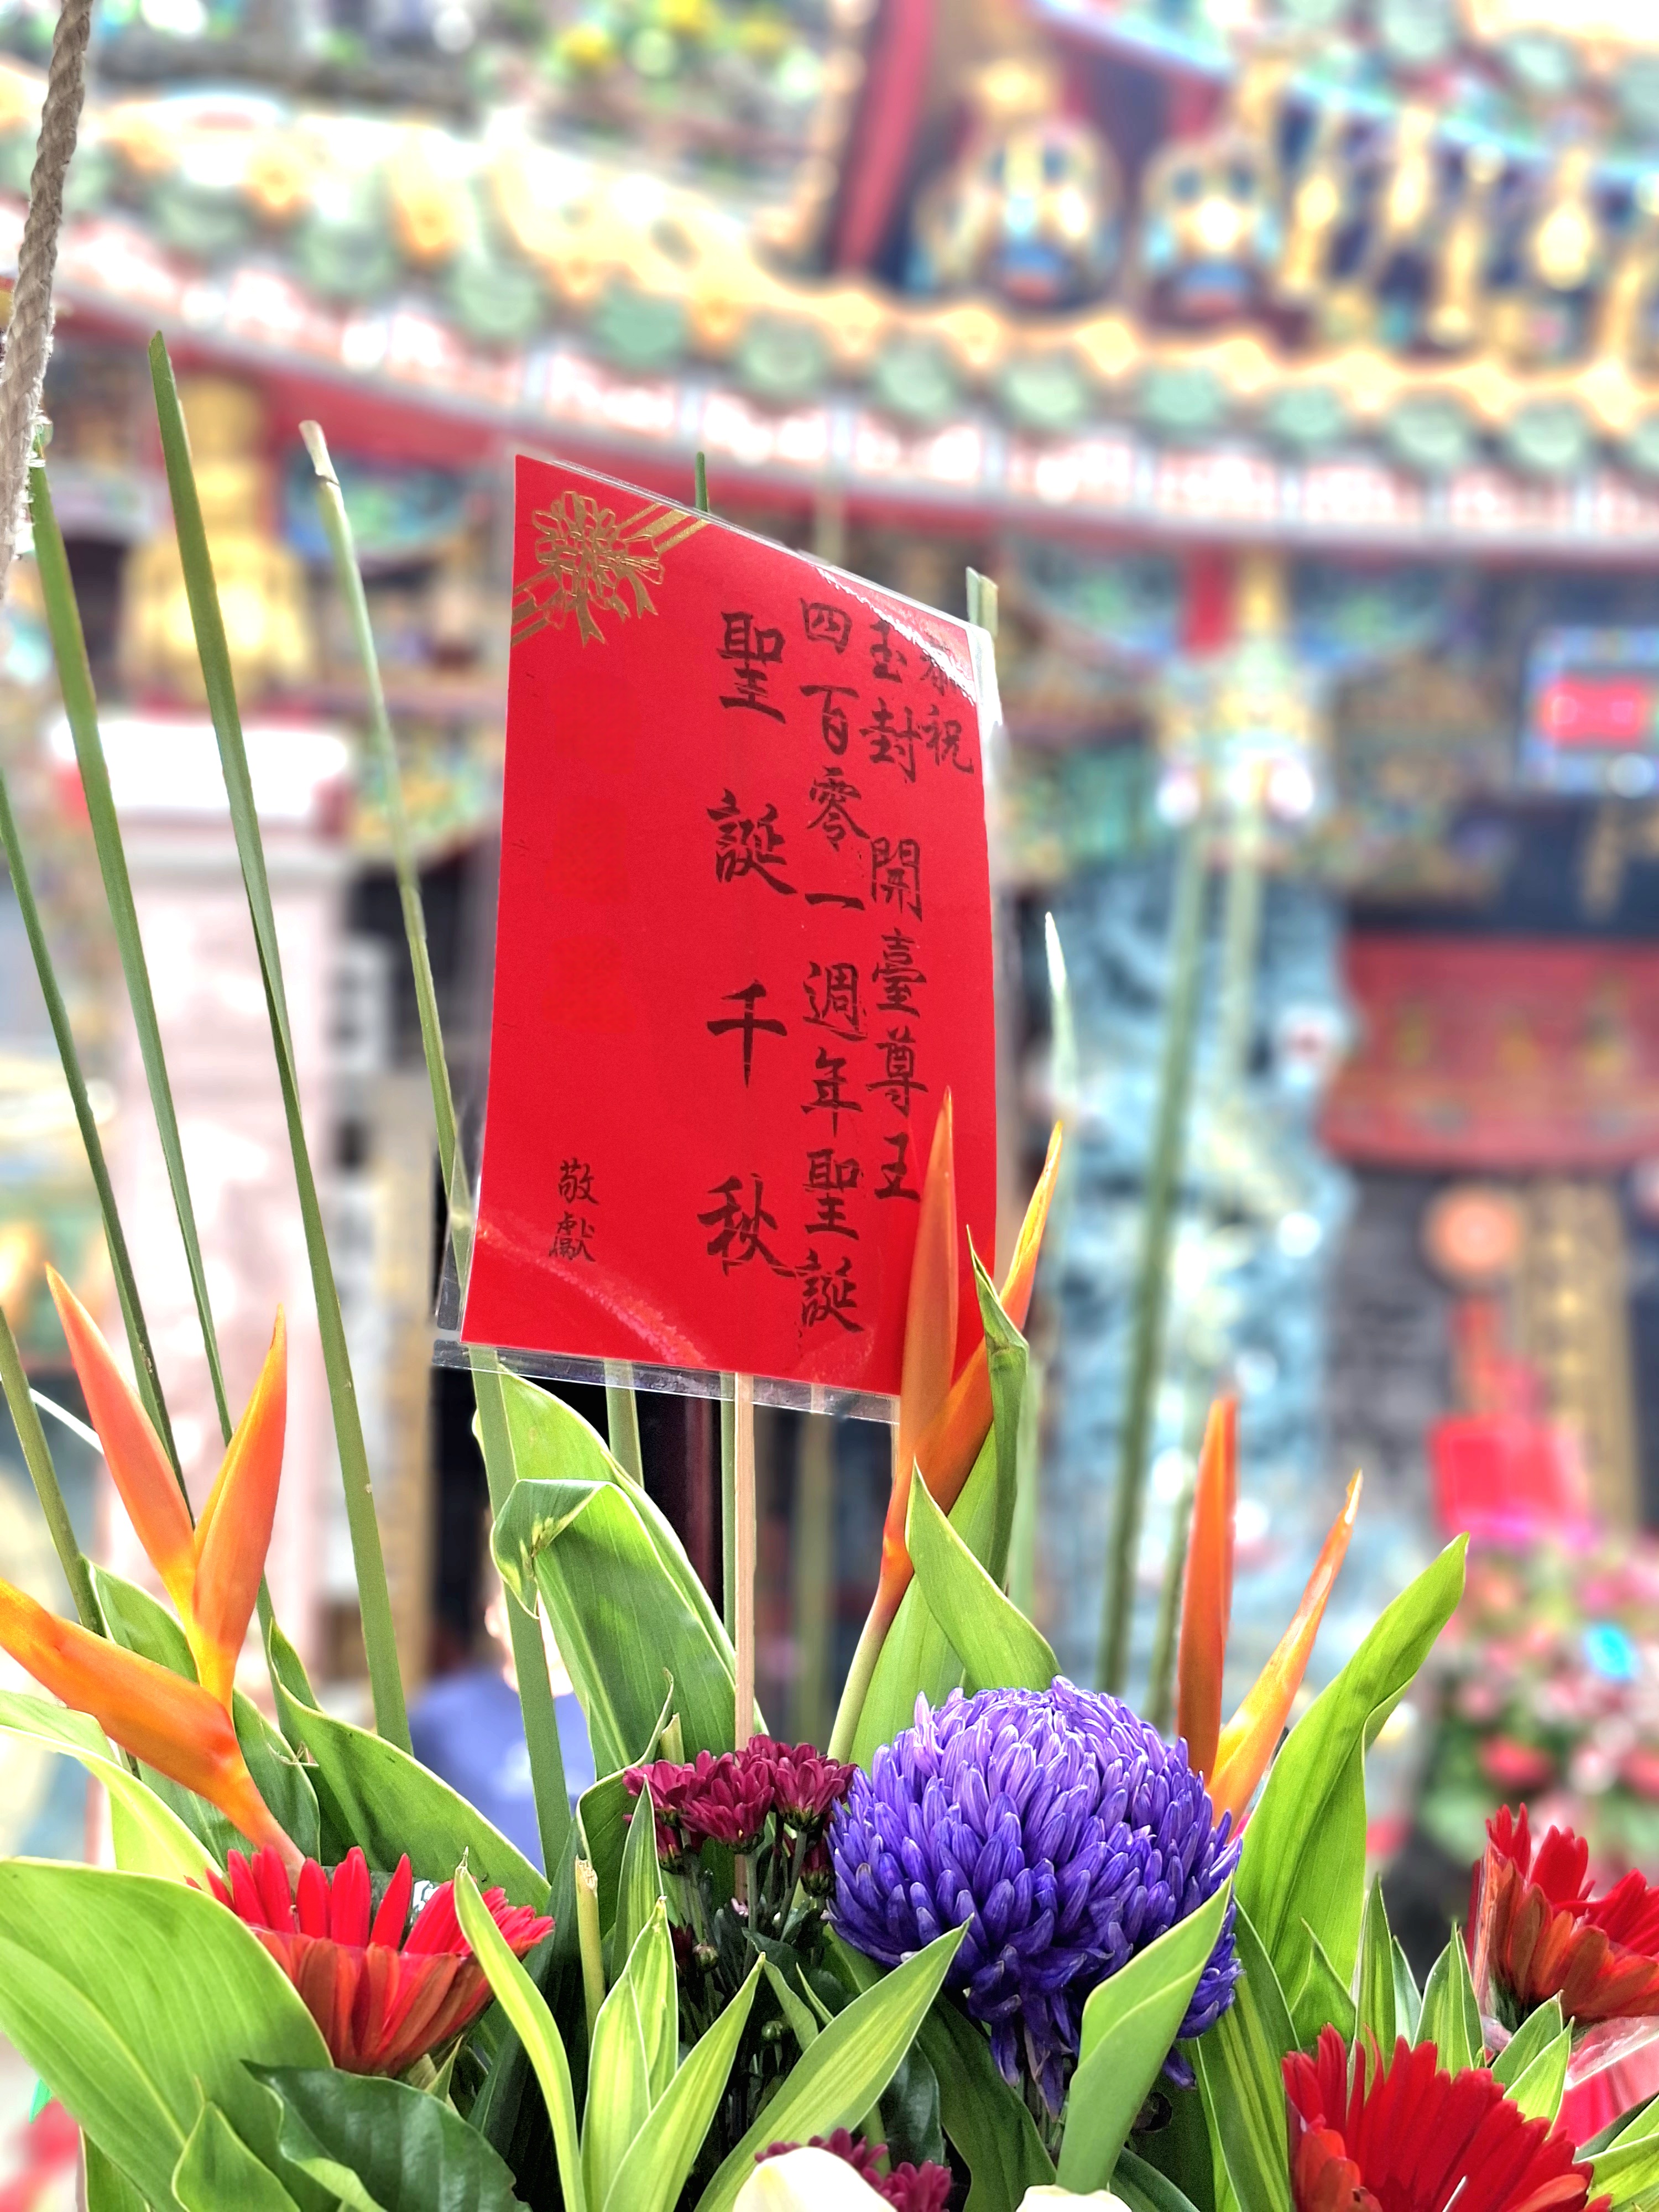 恭祝
玉封 開臺尊王
四百零一週年聖誕
聖誕千秋
敬獻